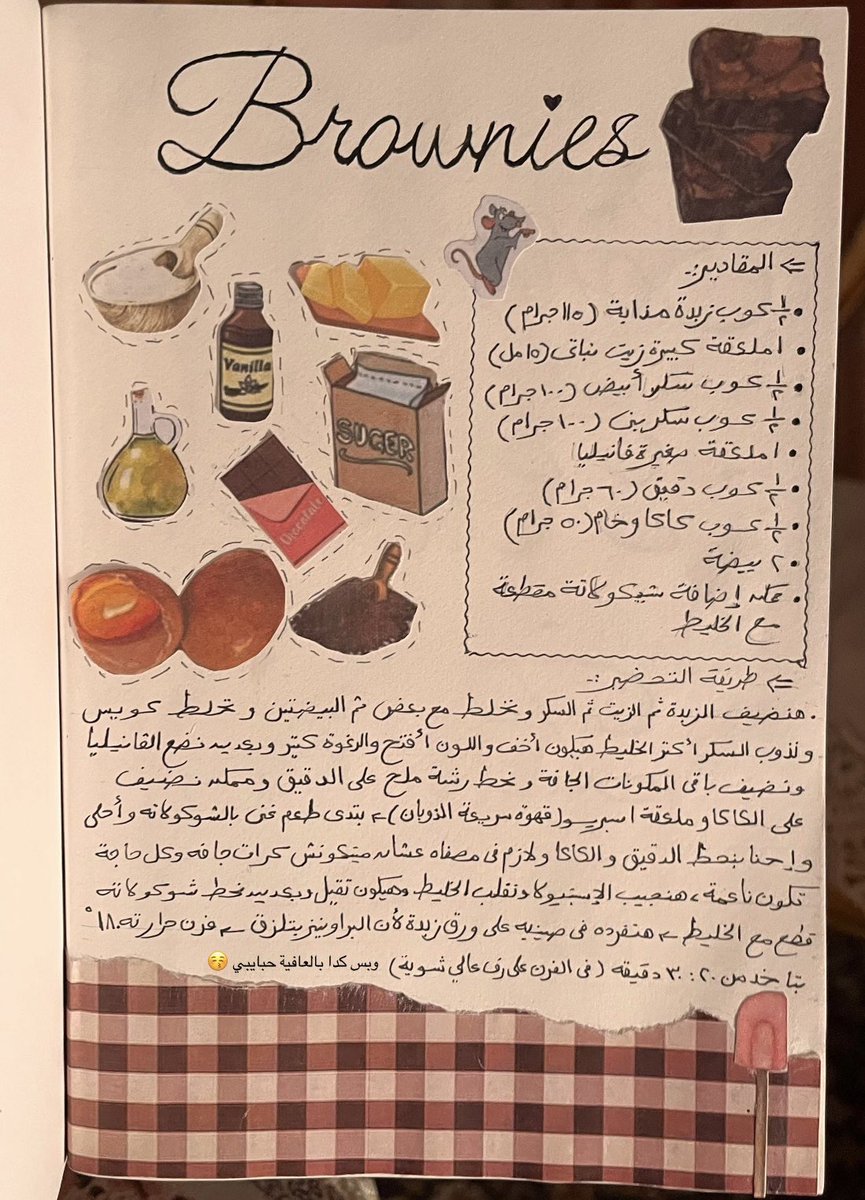 Brownies
Vanilla
SUGER
Chocolate
⇐ المقادير:-
• ½ كوب زبدة مذابة (١١٥ جرام)
• ١ ملعقة كبيرة زيت نباتى (١٥ مل)
• ½ كوب سكر أبيض (١٠٠ جرام)
• ½ كوب سكر بنى (١٠٠ جرام)
• ١ ملعقة صغيرة فانيليا
• ½ كوب دقيق (٦٠ جرام)
• ½ كوب كاكاو خام (٥٠ جرام)
• ٢ بيضة
• ممكن إضافة شيكولاتة مقطعة
مع الخليط
⇐ طريقة التحضير:-
. هنضيف الزبدة ثم الزيت ثم السكر ونخلط مع بعض ثم البيضتين و نخلط كويس
و نذوب السكر أكتر الخليط هيكون أخف واللون أفتح والرغوة كتير وبعدين نضع الفانيليا
ونضيف باقى المكونات الجافة و نحط رشة ملح على الدقيق وممكن نضيف
على الكاكاو ملعقة اسبريسو (قهوة سريعة الذوبان) بتدى طعم غنى بالشوكولاته وأحلى
وإحنا بنحط الدقيق والكاكاو لازم فى مصفاه عشان ميتكونش كرات جافه وكل حاجة
تكون ناعمة، هنجيب الإسبتيولا ونقلب الخليط وهيكون تقيل وبعدين نحط شوكولاته
قطع مع الخليط هنفرده فى صينيه على ورق زبدة لأن البراونيز بتلزق فرن حرارته ١٨٠°
بتاخد من ٢٠ : ٣٠ دقيقه (فى الفرن على رف عالي شوية) وبس كدا بالعافية حبايبي 😚